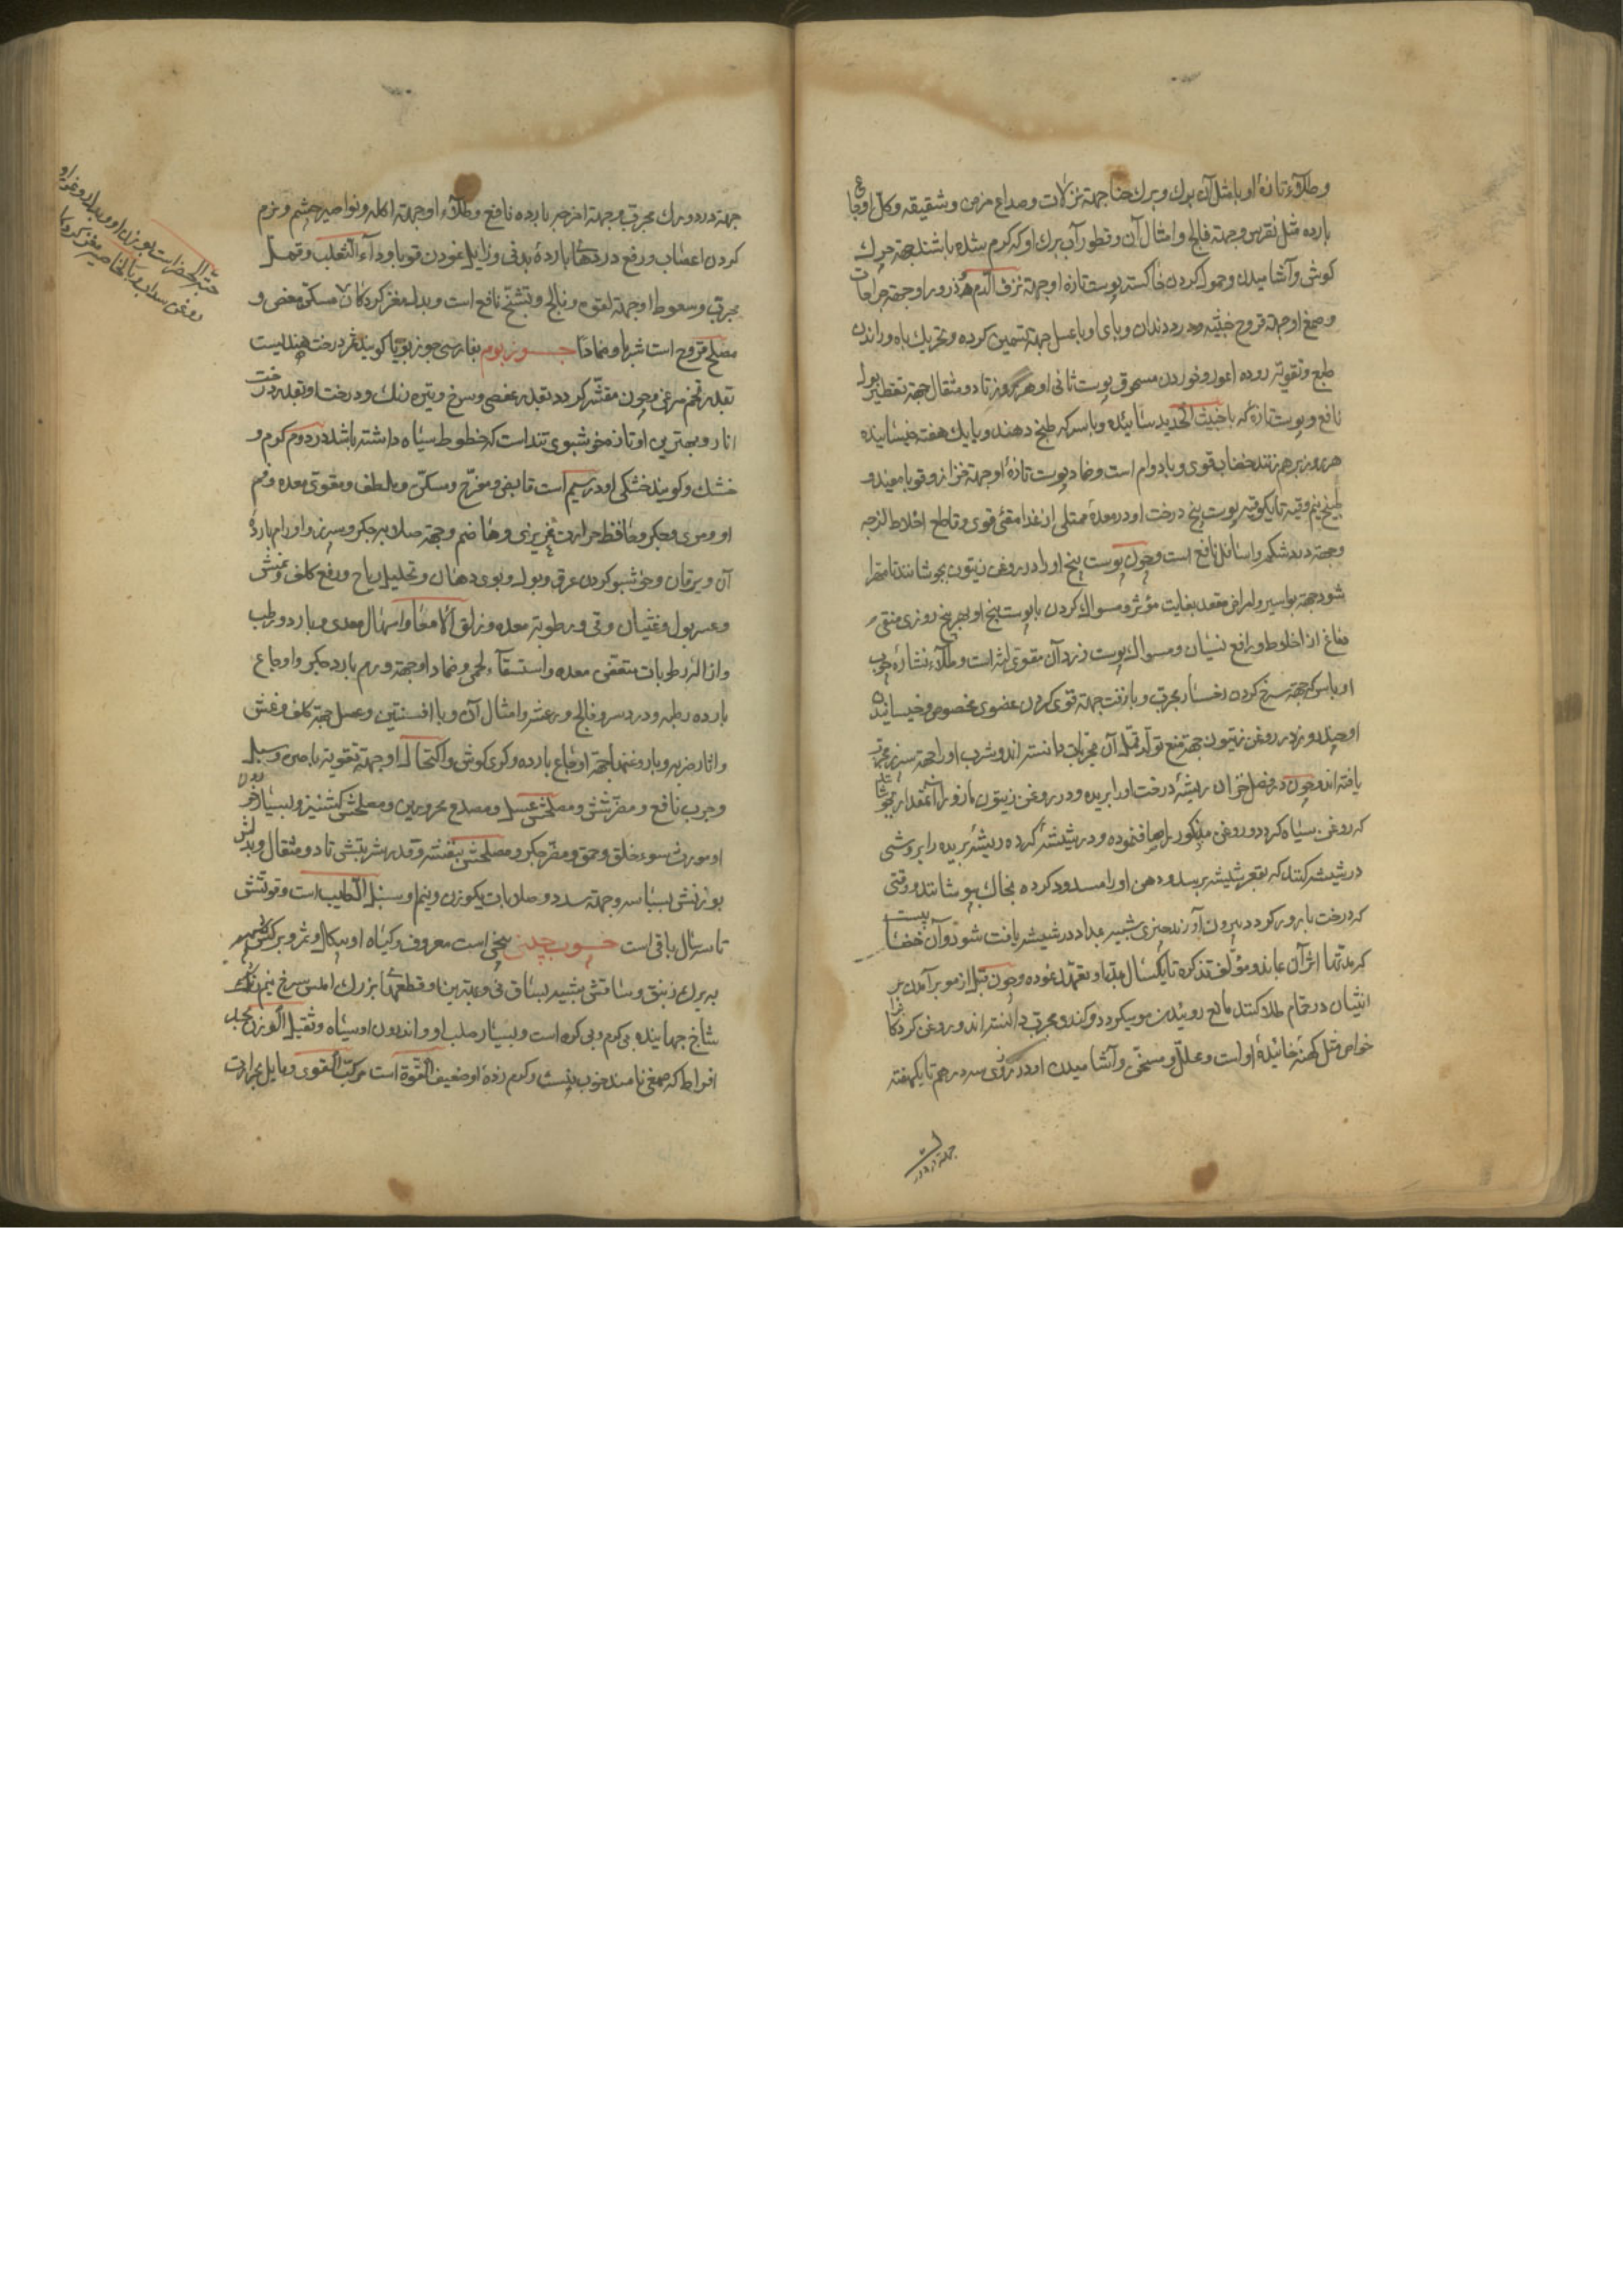 وطلاء تازهٔ او با مثل آن بورك وبرك حنا جهة نزلات وصداع مزمن وشقيقه وكل اوجاع
بارده مثل نقرس وجهة فالج وامثال آن وقطور آب برك او كه كرم شده باشد جهة چرك
كوش وآشاميدن وحمول كردن خاكستر پوست تازهٔ او جهة نزف الدم و ذرور او جهة جراحات
وصمغ او جهة قروح خبيثه ودرد دندان وباى او با عسل جهة تسمين كرده وتحريك باه وراندن
طبع وتقوية روده اعور وخوردن مسحوق پوست ثانى او هر روز تا دو مثقال جهة تقطير بول
نافع وپوست تازهٔ كه با خبث الحديد سائيده وبا سركه طبخ دهند ويا يك هفته خيسانيده
هر روز برهم زنند خضاب قوى وبا دوام است وضماد پوست تازهٔ او جهة حزاز وقوبا مفيد و
طبيخ نيم وقيه تا يكوقيه پوست بيخ درخت او در معدهٔ ممتلى از غذا مقئ قوى وقاطع اخلاط لزجه
وجهة درد شكم واسافل نافع است وچون پوست بيخ او را در روغن زيتون بجوشانند تا مهرا
شود جهة بواسير وامراض مقعد بغايت مؤثر ومسواك كردن با پوست بيخ او بهر پنج روزى منقى
دماغ از اخلاط ورافع نسيان ومسواك پوست زرد آن مقوى لثه است وطلاء نشاره چوب
او با سركه جهة سرخ كردن رخسار مجرب وبا زفت جهة قوى كردن عضوى مخصوص وخيسانيده
او چند روز در روغن زيتون جهة منع تولد قمل آن مجربات دانسته اند وشرب او را جهة سپرز مجرب
يافته اند وچون در فصل خزان ريشهٔ درخت او را بريده ودر روغن زيتون مازو را آنمقدار بجوشانند
كه روغن سياه كردد وروغن مذكور را صاف نموده ودر شيشه كرده ريشهٔ بريده را بروشى
در شيشه كنند كه بقعر شيشه برسد ودهن او را مسدود كرده بخاك بپوشانند ووقتى
كه درخت بارور كردد بيرون آورند چيزى شبيه بمداد در شيشه يافت شود وآن خضا بيست
كه مدتها اثر آن بماند ومؤلف تذكره تا يكسال مبالغه وتعهد نموده وچون قبل از مو برآمدن بر
انثيان در حمام طلا كنند مانع روئيدن مو ميكردد وكندى مجرب دانسته اند وروغن كردكان را
خواص مثل كهنهٔ خائيدهٔ او است ومحلل ومسخن وآشاميدن او در روزى سه درهم تا يكهفته
جهة درد ورك
جهة درد ورك مجرب وجهة اخرجهٔ بارده نافع وطلاء او جهة اكله ونواصير چشم ونرم
كردن اعصاب ورفع دردهاى بارده بدنى وزايل نمودن قوبا وداء الثعلب وقمل
مجرب وسعوط او جهة لقوه وفالج وتشنج نافع است وبدل مغز كردكان مسكن مغص و
مصلح قروح است شربا وضمادا جوزبوم بفارسى جوزبويا كويند ثمر درخت هنديست
بقدر تخم مرغى وچون مقشر كردد بقدر عفصى وسرخ وتيره رنك ودرخت او بقدر درخت
انار وبهترين او تازه خوشبوى تند است كه خطوط سياه داشته باشد در دوم كرم و
خشك وكويند خشكى او در سيم است قابض ومفرح ومسكن وملطف ومقوى معده وفم
او ومرى وجكر وحافظ حرارت غريزى وهاضم وجهة صلابه جكر وسپرز واورام باردهٔ
آن ويرقان وخوشبو كردن عرق وبول وبوى دهان وتحليل رياح ورفع كلف ونمش
وعسر بول وغثيان وقى ورطوبة معده وزلق الامعا واسهال معدى وبارد ورطب
وازاله رطوبات متعفن معده واستسقآء لحمى وضماد او جهة ورم بارد جكر واوجاع
بارده رطبه ودرد سر وفالج ورعشه وامثال آن وبا افسنتين وعسل جهة كلف ونمش
واثار ضربه وبا روغنها جهة اوجاع بارده وكرى كوش واكتحال او جهة تقوية باصره وسبل
وجرب نافع ومضر شش ومصلحش عسل ومصدع محرورين ومصلحش كشنيز وبسيار خوردن
او مورث سوء خلق وحمق ومضر جكر ومصلحش بنفشه وقدر شربتش تا دو مثقال وبدلش
بوزنش بسباسه وجهة سدد وصلابات يكوزن ونيم او سنبل الطيب است وقوتش
تا سه سال باقى است چوب چينى بيخى است معروف وكياه او بيكل وثمر وبركش شبيه
به برك زنبق وساقش شبيه بساق نى وبهترين او قطعهاى بزرك املس سرخ نيم رنك
شاخ جهانيده بى كرم وبى كره است وبسيار صلب او واندرون او سياه وثقيل الوزن بحد
افراط كه صمغى نامند خوب نيست وكرم زدهٔ او ضعيف القوة است مركب القوى ومايل بحرارت
حبة الخضرا است بوزن او وبدل روغن او
روغن سداب وبالخاصيه مغز كردكان